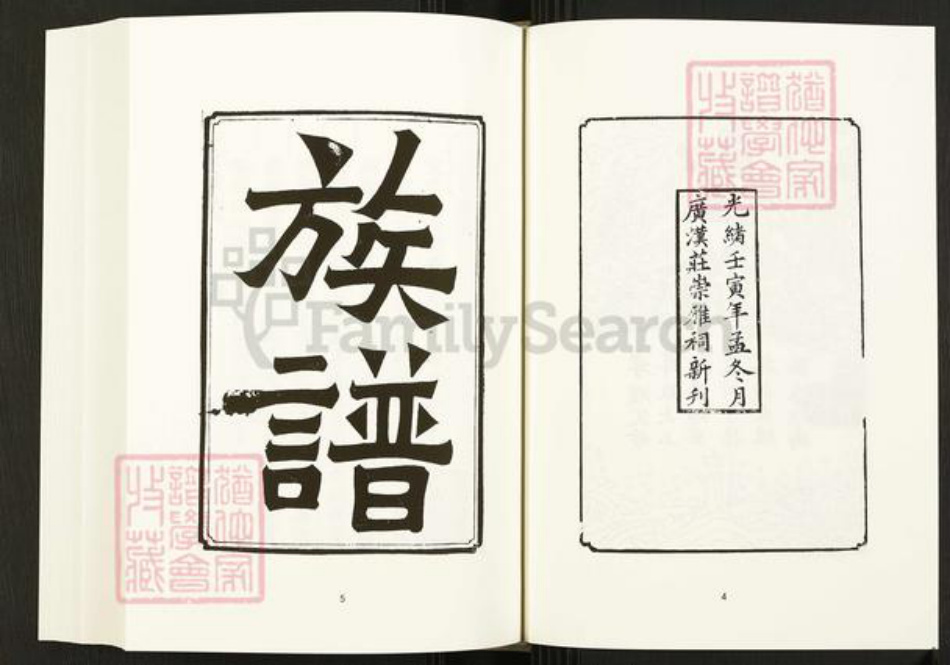 光緒壬寅年孟冬月
廣漢莊崇雅祠新刊
4
族譜
5
譜學會
收藏
譜學會
收藏
FamilySearch